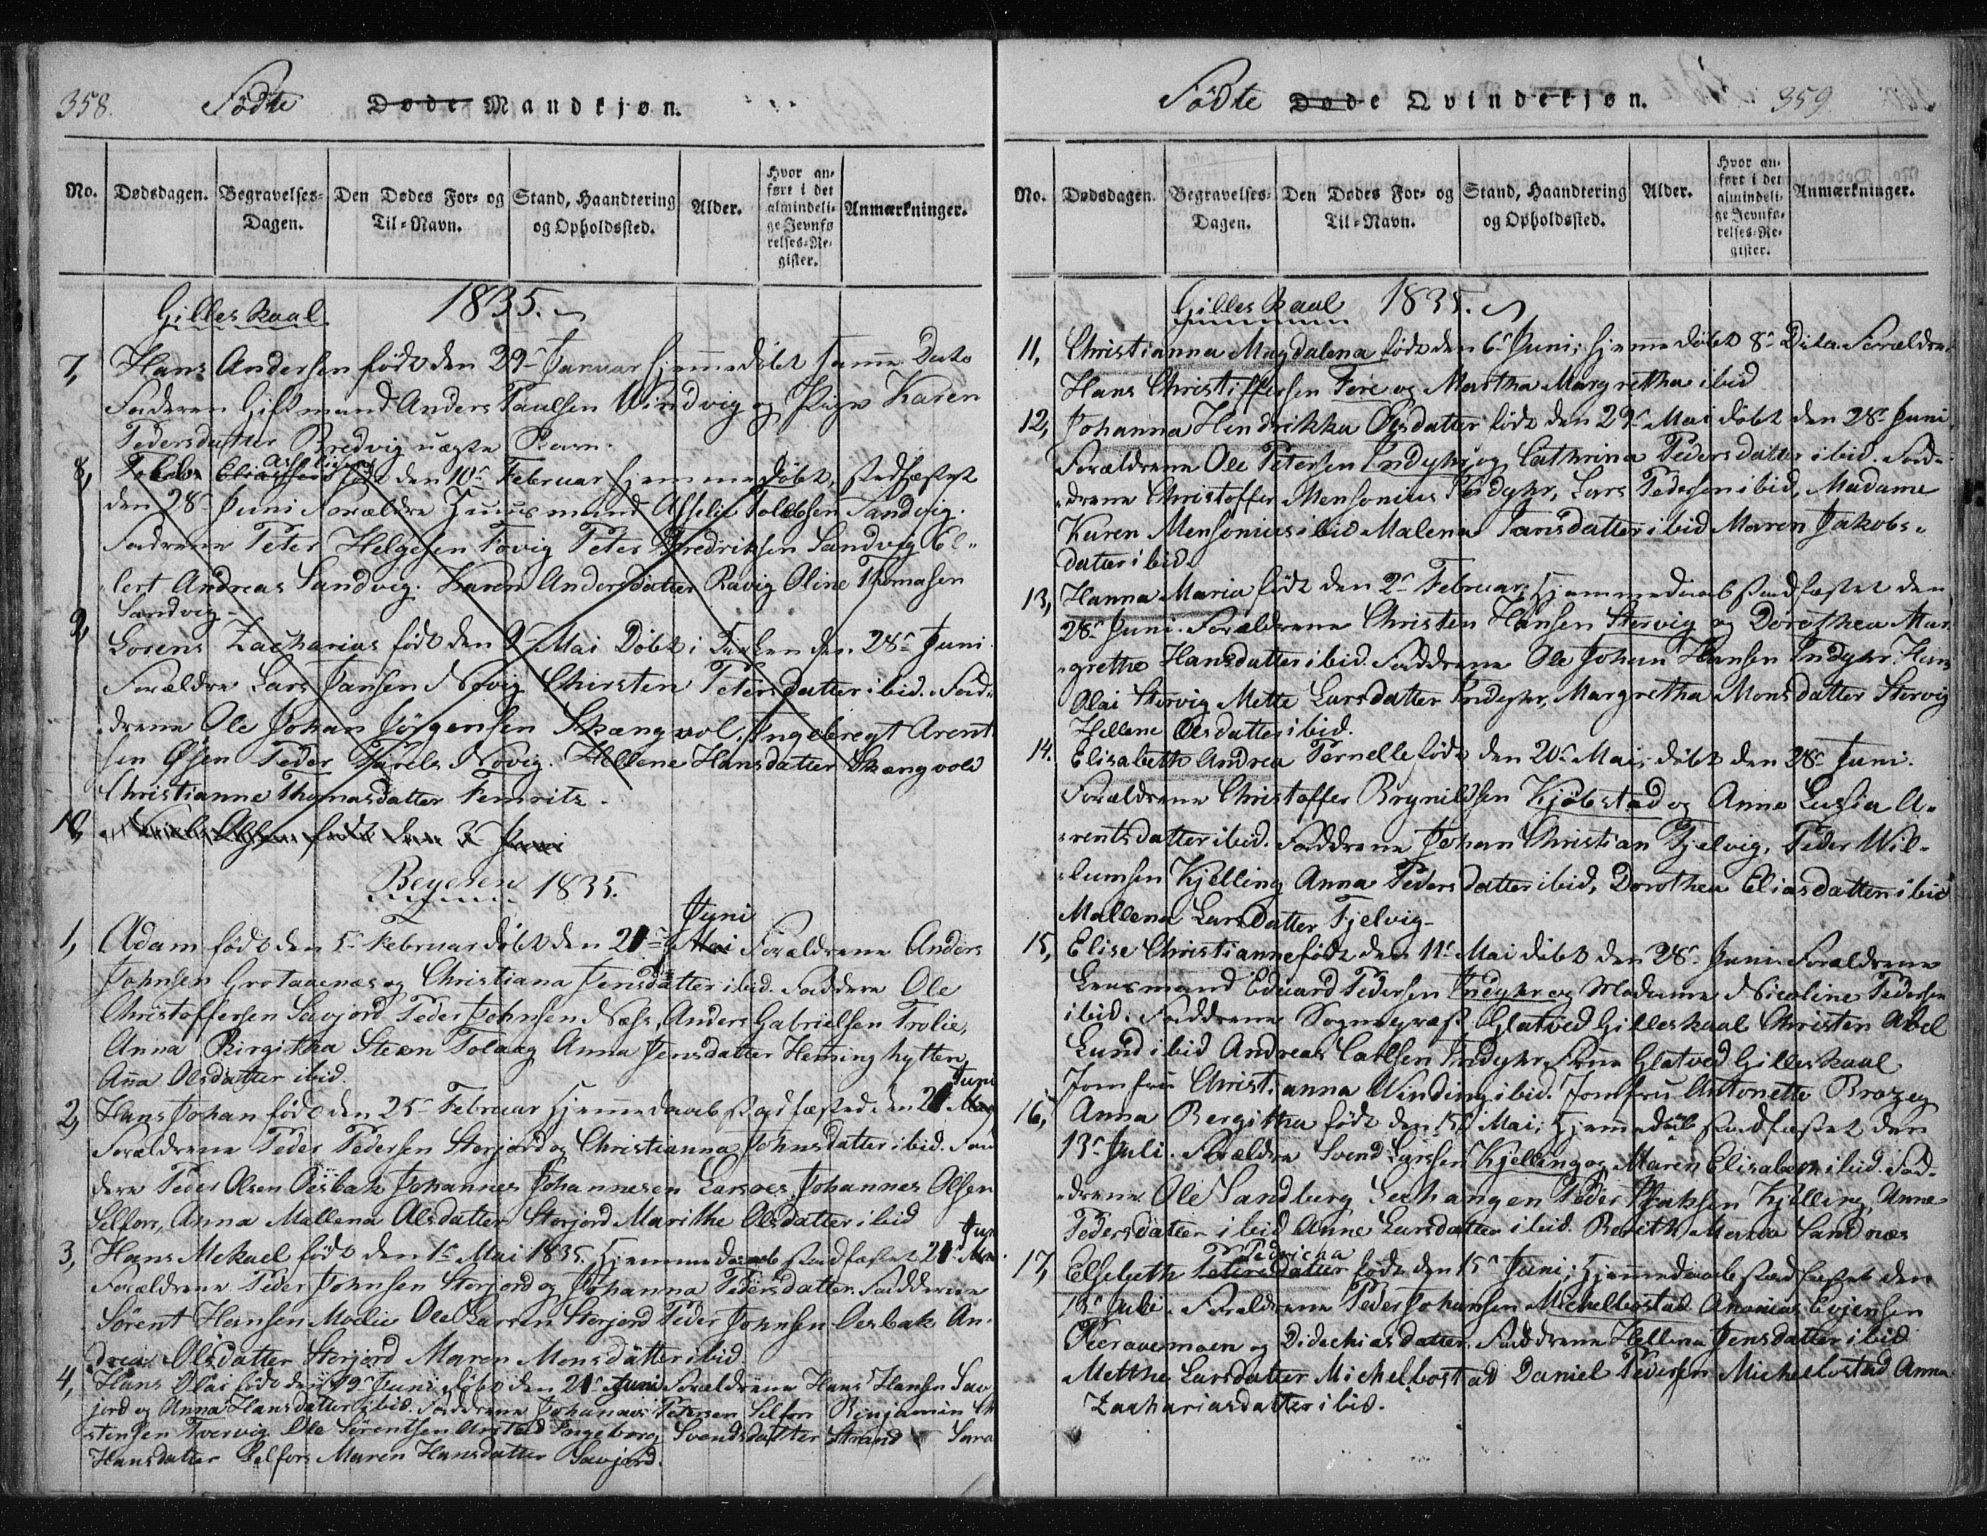 358.
Födte Døde Mandkjøn.
No. Dødsdagen. Begravelses-Dagen. Den Dødes For- og Til-Navn. Stand, Haandtering og Opholdssted. Alder. Hvor anført i det almindelige Jevnførelses-Register. Anmærkninger.
Gilleskaal 1835.
7, Hans Andersen født den 29de Januar hjemmedøbt samme Dato
Faderen Giftmand Anders Paulsen Windvig og Pige Karen
Pedersdatter Bredvig uægte Barn.
Asseliussen
8, født den 10de Februar hjemmedøbt, stadfæstet
den 28de Juni Forældre Huusmand Tolebsen Sandvig.
Fadrene Peter Helgesen Fovig Peter Fredriksen Sandvig El-
lert Andreas Sandvig. Karen Andersdatter Ravig Oline Thomasen
Sandvig
9, Sorens Zacharias født den 9de Mai Døbt i Kirken den 28de Juni
Forældre Lars Jansen Novig Chirsten Petersdatter ibid. Fad-
drene Ole Johan Jörgensen Skængvol, Ingebregt Arent
sen Øsen Peder Karels Novig. Hellene Hansdatter Skængvold
Christianne Thomasdatter Femriis.
10, Olsen født den 3 Juni
Beyeren 1835.
Juni
1, Adam født den 5te Februar døbt den 21de Mai Forældrene Anders
Johnsen Grotaaenæs og Christiana Jensdatter ibid. Faddere Ole
Christoffersen Savjord Peder Johnsen Næss, Anders Gabrielsen Trolie,
Anna Birgitha Steen Tolaag Anna Jensdatter Heminghytten
Anna Olsdatter ibid.
Juni
2, Hans Johan født den 25de Februar Hjemmedaab stadfæsted den 21 Mai
Forældrene Peder Pedersen Storjord og Christianna Johnsdatter ibid. Fad
dere Peder Olsen Oesbak Johannes Johannesen Larsoes, Johannes Olsen
Selfors, Anna Mallena Olsdatter Storjord Marithe Olsdatter ibid
Juni
3, Hans Mekael født den 1te Mai 1835. Hjemmedaab stadfæstet 21de Mai
Forældrene Peder Johnsen Storjord og Johanna Pedersdatter. Fadderene
Sörent Hansen Moelie Ole Larsen Storjord Peder Johnsen Oesbak An-
drea Olsdatter Storjord Maren Monsdatter ibid.
4, Hans Olai født den 19de Juni, døbt den 21de Juni Forældrene Hans Hansen Sav
jord og Anna Hansdatter ibid. Faddrene Johannes Petersen Selfors Benjamin Ch
stensen Tvervig Ole Sörentsen Arstad Ingeborg Svendsdatter Strand Sara
Hansdatter Selfors Maren Hansdatter Savjord.
Födte Døde Qvindekjøn. 359.
No. Dødsdagen. Begravelses-Dagen. Den Dødes For- og Til-Navn. Stand, Haandtering og Opholdssted. Alder. Hvor anført i det almindelige Jevnførelses-Register. Anmærkninger.
Gilleskaal 1835.
11, Christianna Magdalena født den 6de Juni; hjemmedøbt 8de Dito. Forældre
Hans Christiffersen Føre og Martha Margretha ibid
12, Johanna Hendrikka Olsdatter født den 29de Mai døbt den 28de Juni
Forældrene Ole Petersen Indyhr og Cathrina Pedersdatter ibid. Fad-
drene Christoffer Mensonius Indyhr, Lars Pedersen ibid, Madame
Karen Mensonius ibid Malena Jansdatter ibid Maren Jakobs-
datter ibid.
13, Hanna Maria født den 2de Februar Hjemmedaab stadfæstet den
28de Juni. Forældrene Christen Hansen Störvig og Dorothea Mar
grethe Hansdatter ibid. Faddrene Ole Johan Hansen Indyhr Hans
Olai Störvig Mette Larsdatter Indyhr, Margretha Monsdatter Störvig
Hellene Olsdatter ibid.
14. Elisabeth Andrea Pernelle født den 20de Mai, døbt den 28de Juni.
Forældrene Christoffer Brynildsen Kjöbstad og Anne Lusia A-
rentsdatter ibid. Faddrene Johan Christian Fjelvig, Peder Wil-
lumsen Kjelling Anna Pedersdatter ibid, Dorothea Eliasdatter ibid
Mallena Larsdatter Fjelvig
15, Elise Christianne født den 11te Mai døbt den 28de Juni Forældrene
Lensmand Eduard Pedersen Indyhr og Madame Nicoline Pedersen
ibid. Faddrene Sognepræst Glatved Gilleskaal Christen Abel
Lund ibid Andreas Carlsen Indyhr, Glatved Gilleskaal
Jomfru Christianna Winding ibid. Jomfru Antonette Brozey
16, Anna Bergitha født den Mai; Hjemmedaab stadfæstet den
13de Juli. Forældre Svend Larssen Kjelling og Maren Elisabeth ibid. Fad-
drene Ole Sandberg Leehangen Peder Isaksen Kjelling, Anne
Pedersdatter ibid Anne Larsdatter ibid. Bereth Mertha Sandnæs
Pedriena
17, Elsebeth Petersdatter født den 15de Juni, Hjemmedaab stadfæstet den
13de Juli. Forældrene Peder Johansen Michelbostad Ananias Evjensen
og Faddrene Hellena Jensdatter ibid
Metthe Larsdatter Michelbostad Daniel Pedersen Michelbostad Anna
Zachariasdatter ibid.